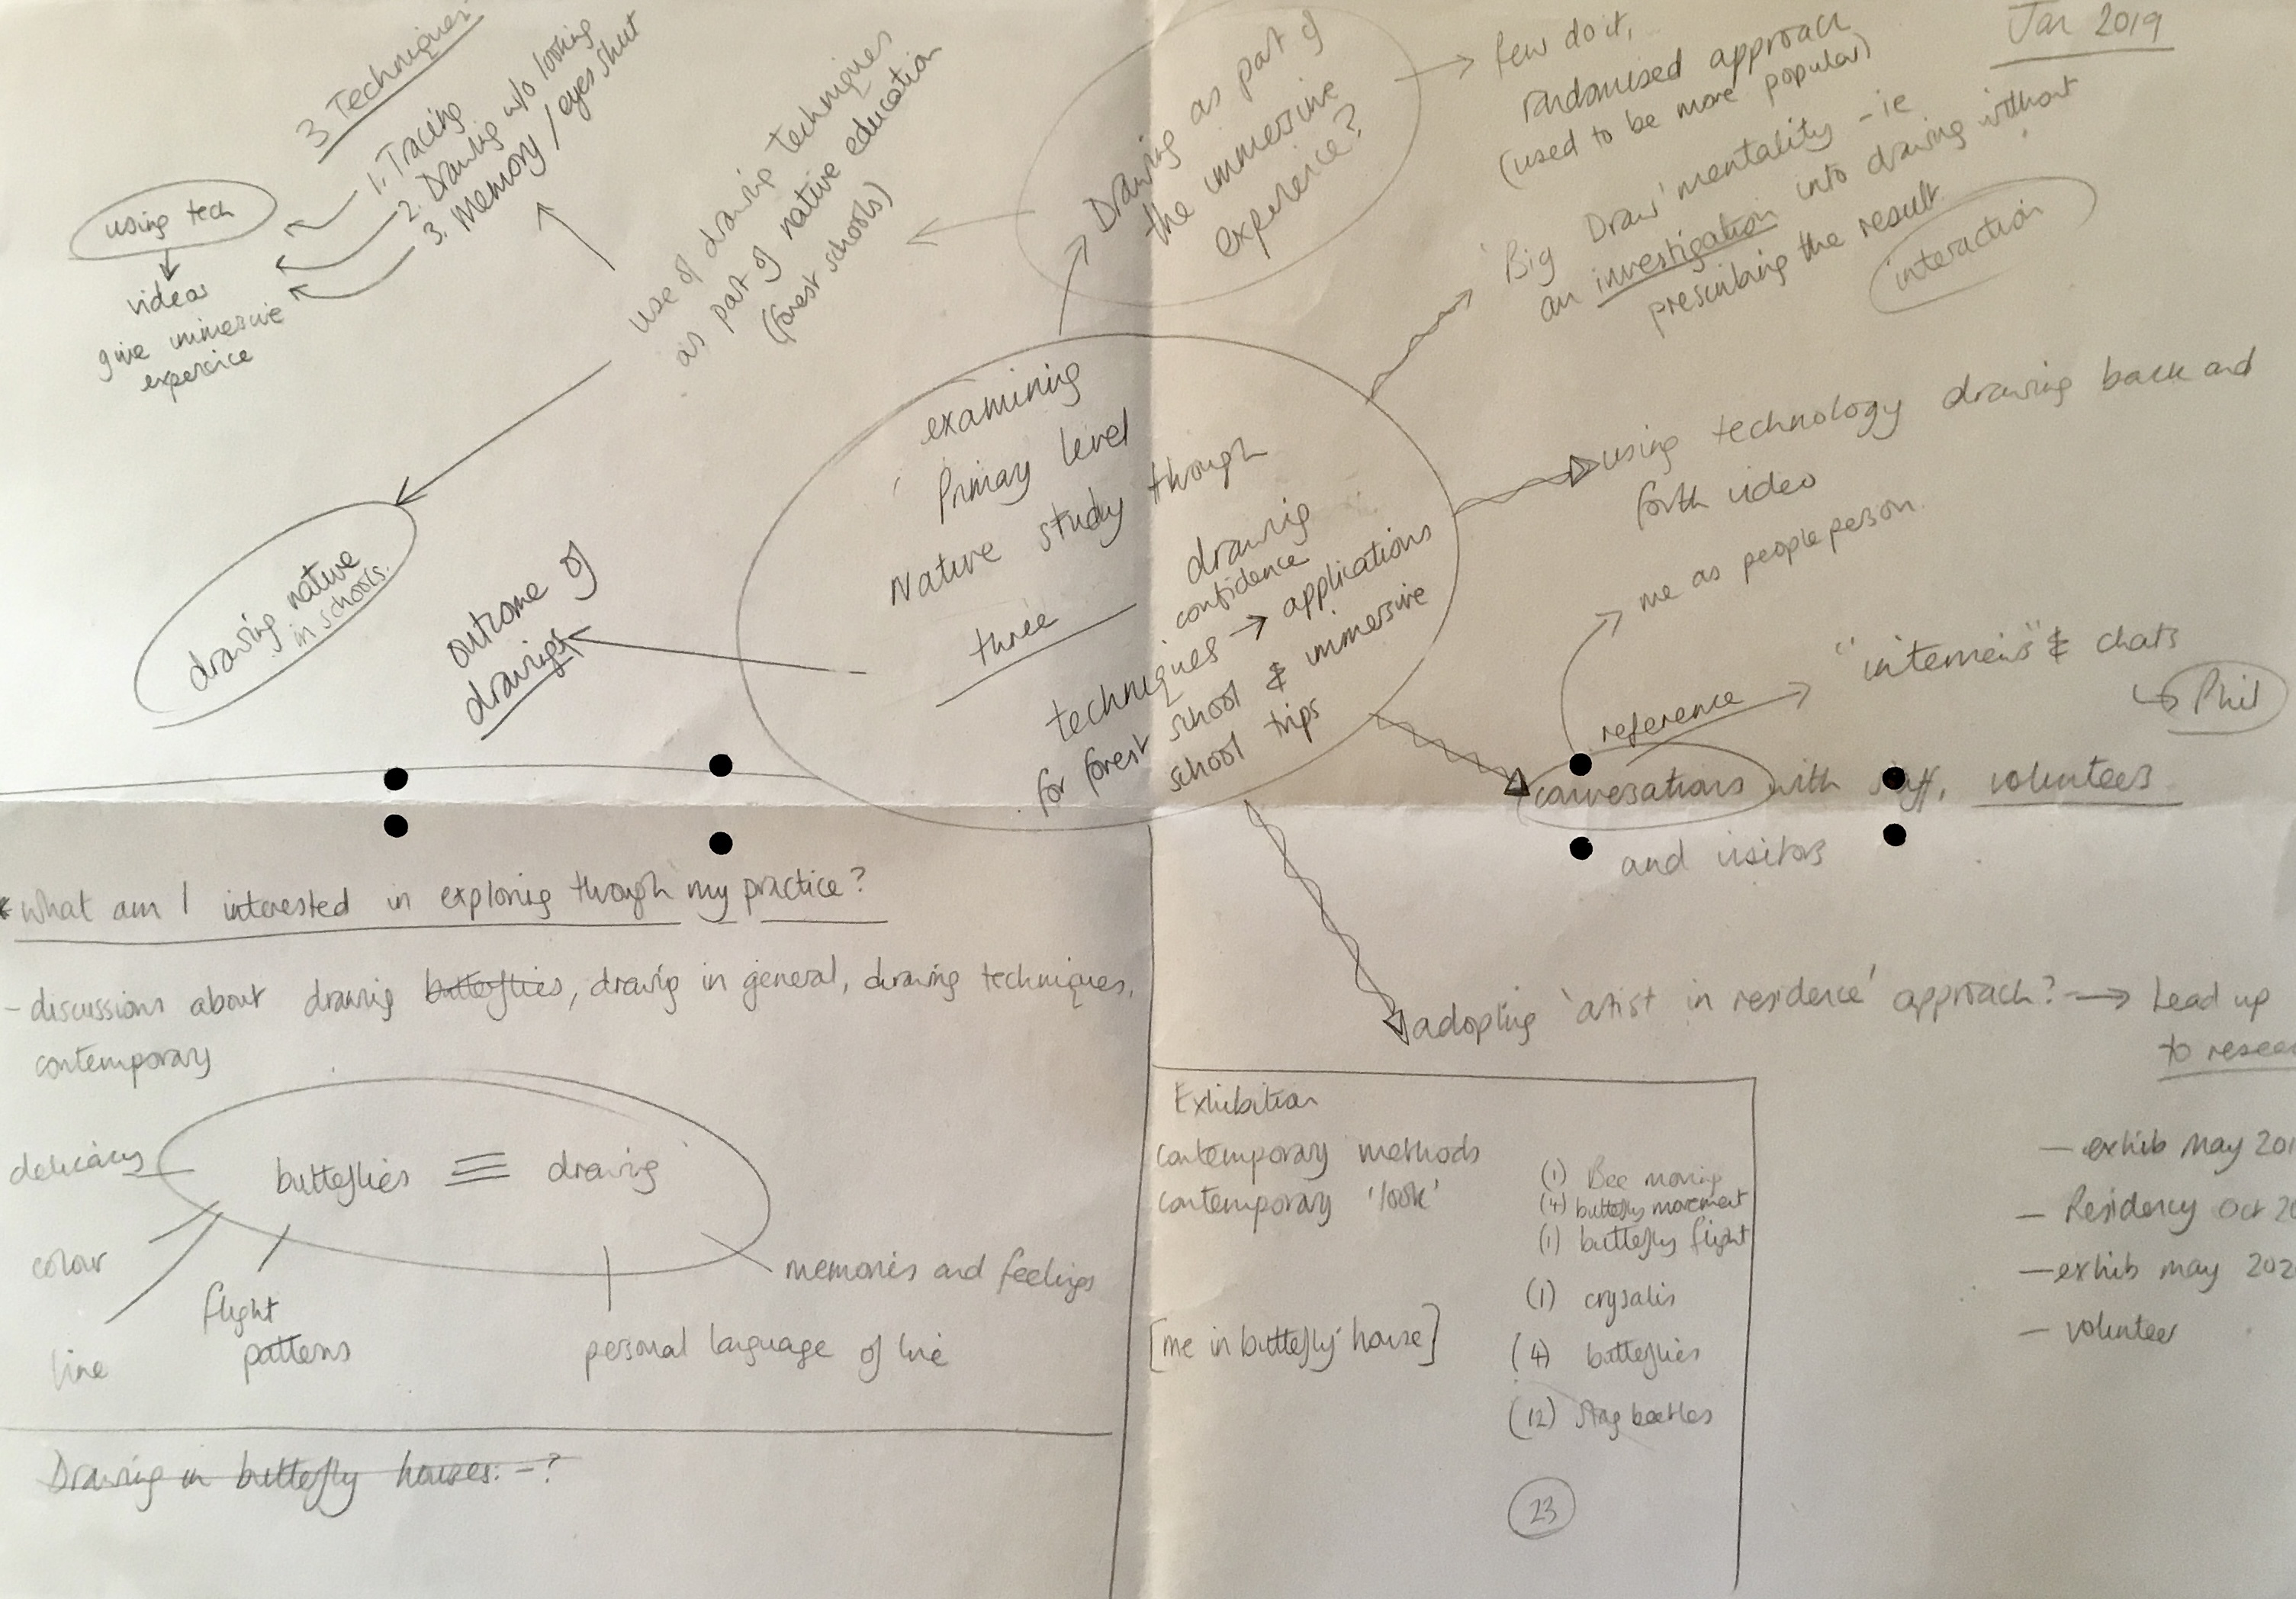 Jan 2019
3 Techniques
1. Tracing
2. Drawing w/o looking
3. Memory / eyes shut
using tech
videos
give immersive
experience
use of drawing techniques
as part of native education
(forest schools)
Drawing as part of
the immersive
experience?
few do it,
randomised approach
(used to be more popular)
'Big Draw' mentality - ie
an investigation into drawing without
prescribing the result
interaction
using technology drawing back and
forth video
me as people person
reference
"interviews" & chats
Phil
conversations with staff, volunteers
and visitors
examining
Primary level
Nature study through
drawing
confidence
three
techniques → applications
for forest school & immersive
school trips
drawing native
in schools.
outcome of
drawings
*What am I interested in exploring through my practice?
- discussions about drawing butteflies, drawing in general, drawing techniques,
contemporary
butteflies ≡ drawing
delicacy
colour
line
flight
patterns
personal language of line
memories and feelings
Drawing in buttefly houses: - ?
adopting 'artist in residence' approach? → Lead up
to resea
Exhibition
contemporary methods
contemporary 'look'
[me in buttefly house]
(1) Bee moving
(4) buttefly movement
(1) buttefly flight
(1) crysalis
(4) butteflies
(12) Stag beetles
23
— exhib May 201
— Residency Oct 20
— exhib may 202
— volunteer